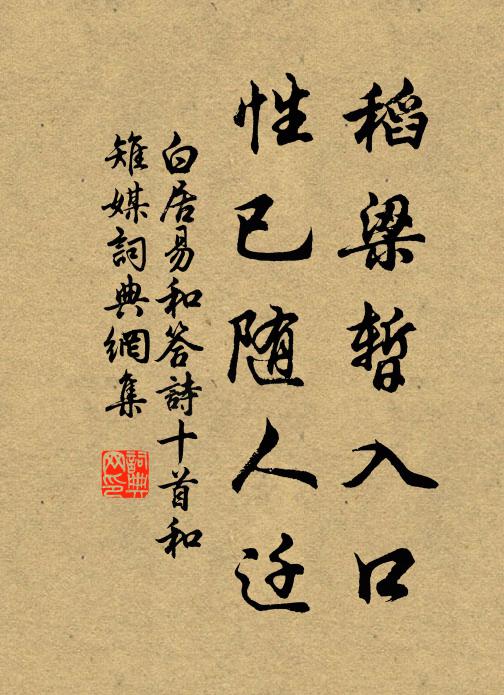 稻粱暫入口
性已随人迁
白居易和答詩十首和
雉媒詞典網集
詞典
网印